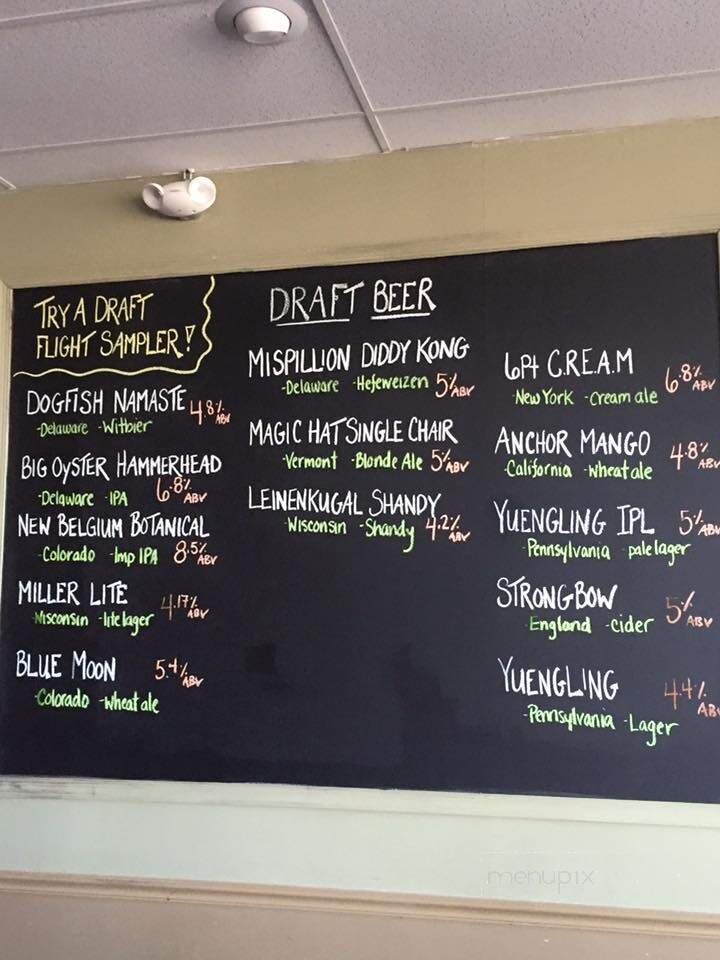 TRY A DRAFT
FLIGHT SAMPLER!
DOGFISH NAMASTE 4.8% ABV
-Delaware -Witbier
BIG OYSTER HAMMERHEAD
-Delaware -IPA 6.8% ABV
NEW BELGIUM BOTANICAL
-Colorado -Imp IPA 8.5% ABV
MILLER LITE 4.17% ABV
-Wisconsin -lite lager
BLUE MOON 5.4% ABV
-Colorado -wheat ale
DRAFT BEER
MISPILLION DIDDY KONG
-Delaware -Hefeweizen 5% ABV
MAGIC HAT SINGLE CHAIR
-Vermont -Blonde Ale 5% ABV
LEINENKUGAL SHANDY
-Wisconsin -Shandy 4.2% ABV
6pt C.R.E.A.M 6.8% ABV
-New York -Cream ale
ANCHOR MANGO 4.8% ABV
-California -wheat ale
YUENGLING IPL 5% ABV
-Pennsylvania -pale lager
STRONGBOW 5% ABV
-England -cider
YUENGLING 4.4% ABV
-Pennsylvania -Lager
menupix